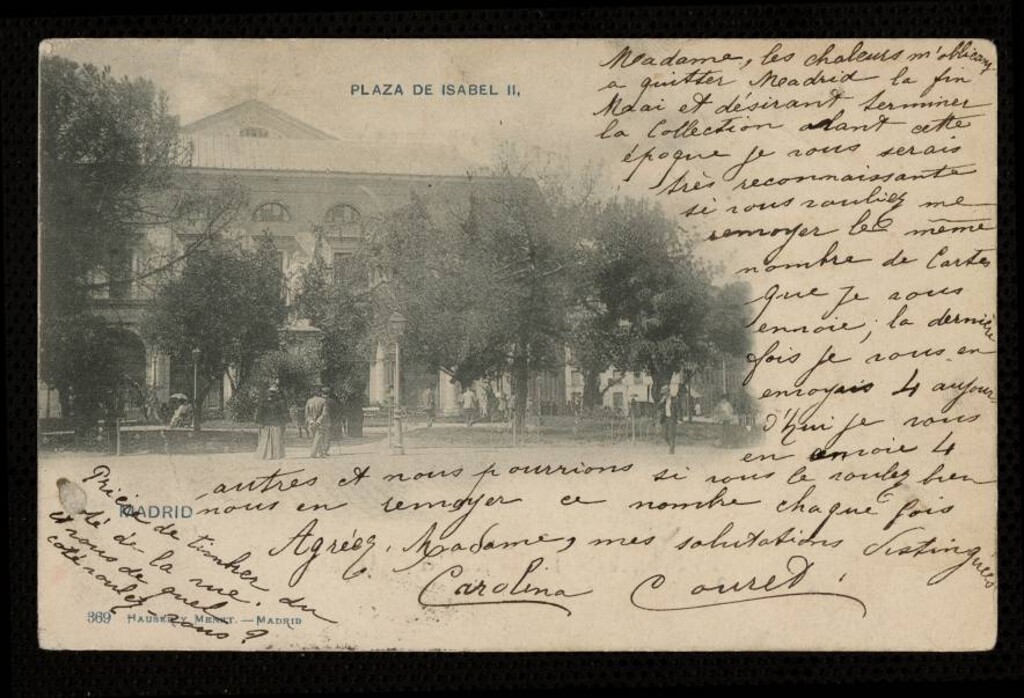 PLAZA DE ISABEL II,
Madame, les chaleurs m'obligeant
a quitter Madrid la fin
Mai et désirant terminer
la Collection avant cette
époque je vous serais
très reconnaissante
si vous vouliez me
renvoyer le même
nombre de Cartes
que je vous
envoie; la dernière
fois je vous en
envoyais 4 aujour
d'hui je vous
en envoie 4
autres et nous pourrions si vous le voulez bien
nous en renvoyer ce nombre chaque fois
Agréez, Madame, mes salutations distinguées
Carolina Couret.
MADRID
Prière de timbrer du
té de la rue.
et vous de quel
coté voulez-vous?
369 HAUSER Y MENET.—MADRID